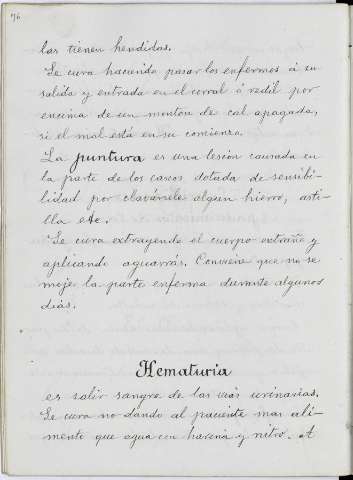 76
las tienen hendidas.
Se cura haciendo pasar los enfermos á su
salida y entrada en el corral ó redil por
encima de un monton de cal apagada,
si el mal está en su comienzo.
La puntura es una lesión causada en
la parte de los cascos dotada de sensibi-
lidad por clavársele algún hierro, asti-
lla etc.
Se cura extrayendo el cuerpo extraño y
aplicando aguarrás. Conviene que no se
moje la parte enferma durante algunos
días.
Hematuria
es salir sangre de las vías urinarias.
Se cura no dando al paciente mas ali-
mento que agua con harina y nitro. A